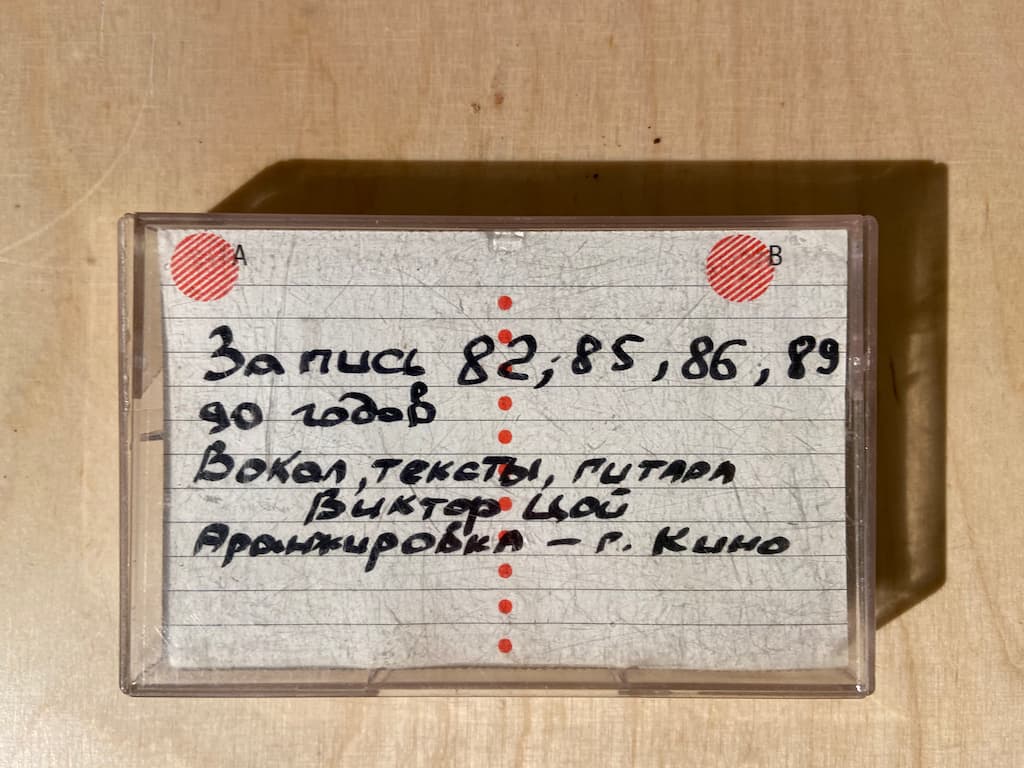 A B
Запись 82, 85, 86, 89
90 годов
Вокал, тексты, гитара
Виктор Цой
Аранжировка – г. Кино